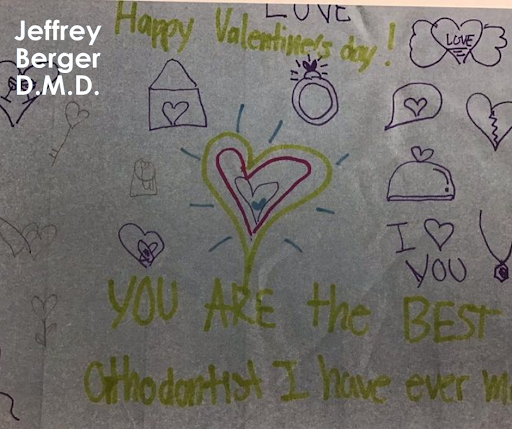 Jeffrey
Berger
D.M.D.
LOVE
Happy Valentine's day!
LOVE
I
YOU
YOU ARE the BEST
Orthodontist I have ever